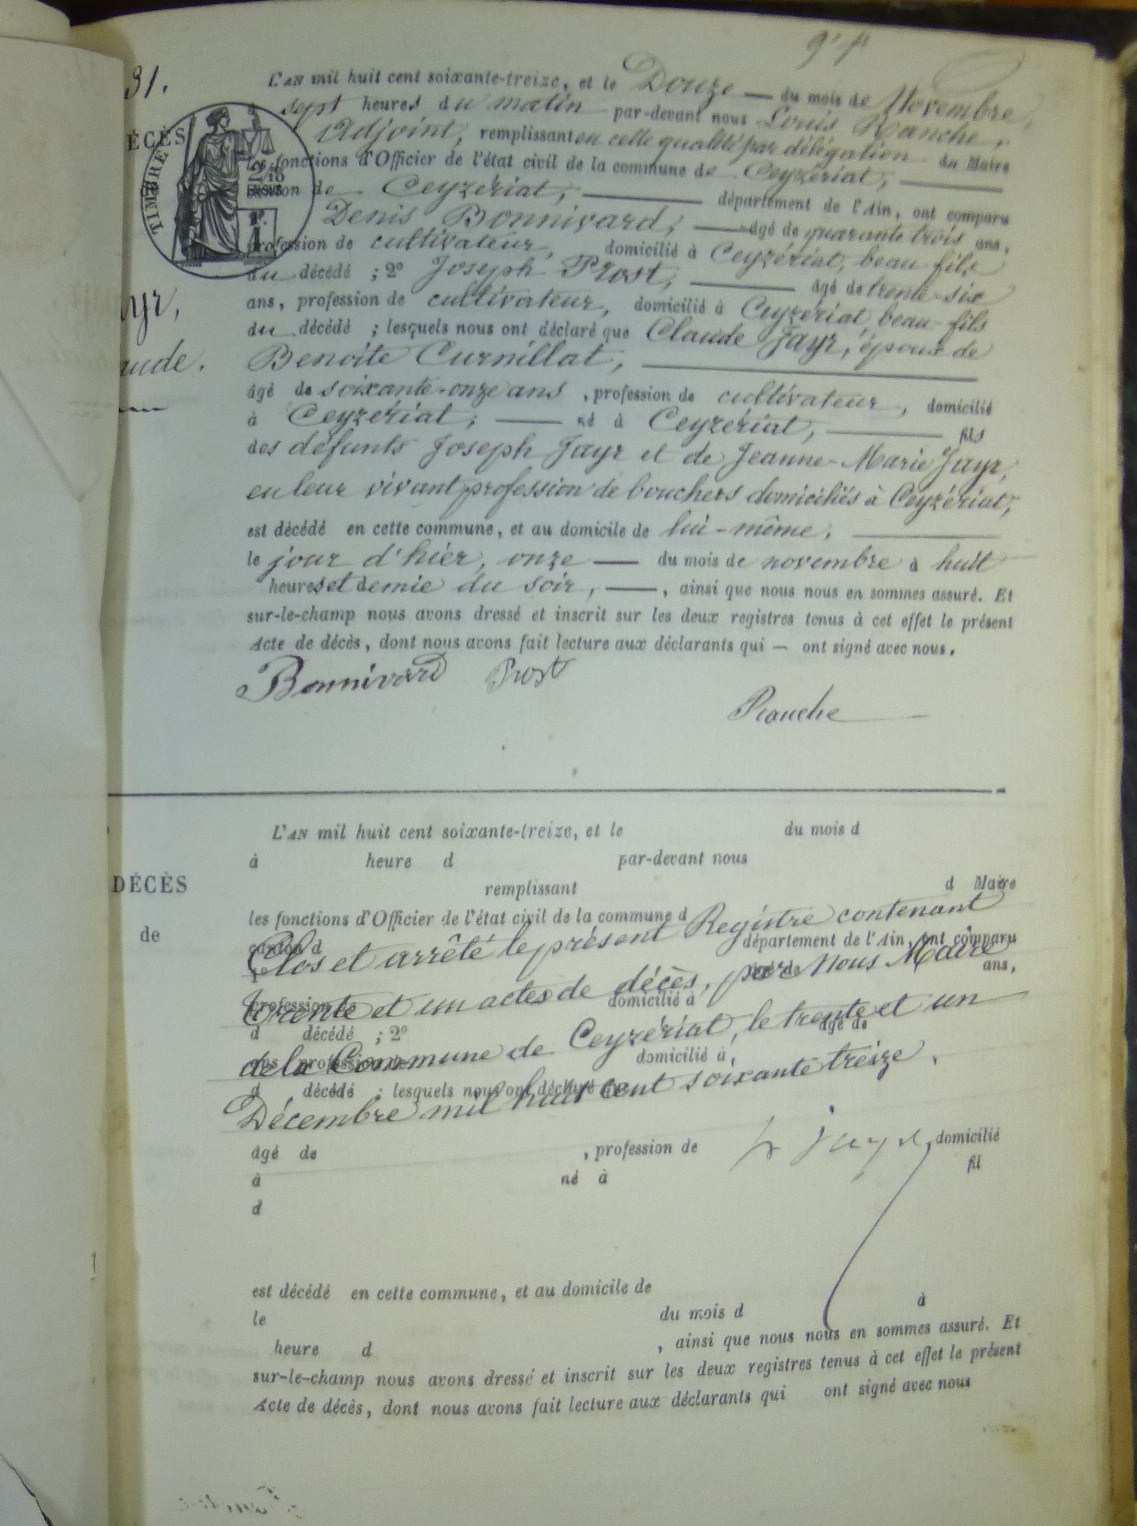 31.
L'AN mil huit cent soixante-treize, et le Douze — du mois de Novembre,
à sept heures du matin par-devant nous Louis Ranche,
Adjoint, remplissant en cette qualité par délégation du Maire
les fonctions d'Officier de l'état civil de la commune de Ceyzériat, —
canton de Ceyzériat, — département de l'Ain, ont comparu
Denis Bonnivard, — âgé de quarante trois ans,
profession de cultivateur, domicilié à Ceyzériat, beau fils
du décédé ; 2° Joseph Prost, — âgé de trente-six
ans, profession de cultivateur, domicilié à Ceyzériat, beau-fils
du décédé ; lesquels nous ont déclaré que Claude Jayr, époux de
Benoite Curnillat, —
âgé de soixante-onze ans, profession de cultivateur, domicilié
à Ceyzériat, — né à Ceyzériat, — fils
des défunts Joseph Jayr et de Jeanne-Marie Jayr,
en leur vivant profession de bouchers domiciliés à Ceyzériat,
est décédé en cette commune, et au domicile de lui-même, —
le jour d'hier, onze — du mois de novembre à huit
heures et demie du soir, —, ainsi que nous nous en sommes assuré. Et
sur-le-champ nous avons dressé et inscrit sur les deux registres tenus à cet effet le présent
Acte de décès, dont nous avons fait lecture aux déclarants qui — ont signé avec nous.
Bonnivard Prost
Ranche
DÉCÈS
TIMBRE
yr,
aude.
L'AN mil huit cent soixante-treize, et le du mois d
à heure d par-devant nous
DÉCÈS
remplissant d Maire
de
les fonctions d'Officier de l'état civil de la commune d
canton d département de l'Ain, ont comparu
Clos et arrêté le présent Registre contenant
ans,
trente et un actes de décès, par Nous Maire
profession de domicilié à
d décédé ; 2° âgé de
de la Commune de Ceyzériat, le trente et un
ans, profession de domicilié à,
d décédé ; lesquels nous ont déclaré que
Décembre mil huit cent soixante treize.
âgé de , profession de domicilié
à né à fil
d
est décédé en cette commune, et au domicile de
le du mois d à
heure d , ainsi que nous nous en sommes assuré. Et
sur-le-champ nous avons dressé et inscrit sur les deux registres tenus à cet effet le présent
Acte de décès, dont nous avons fait lecture aux déclarants qui ont signé avec nous